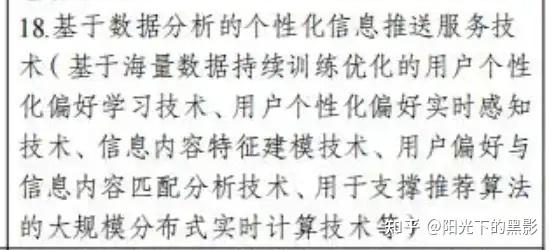 18.基于数据分析的个性化信息推送服务技
术（基于海量数据持续训练优化的用户个性
化偏好学习技术、用户个性化偏好实时感知
技术、信息内容特征建模技术、用户偏好与
信息内容匹配分析技术、用于支撑推荐算法
的大规模分布式实时计算技术等）
知乎 @阳光下的黑影